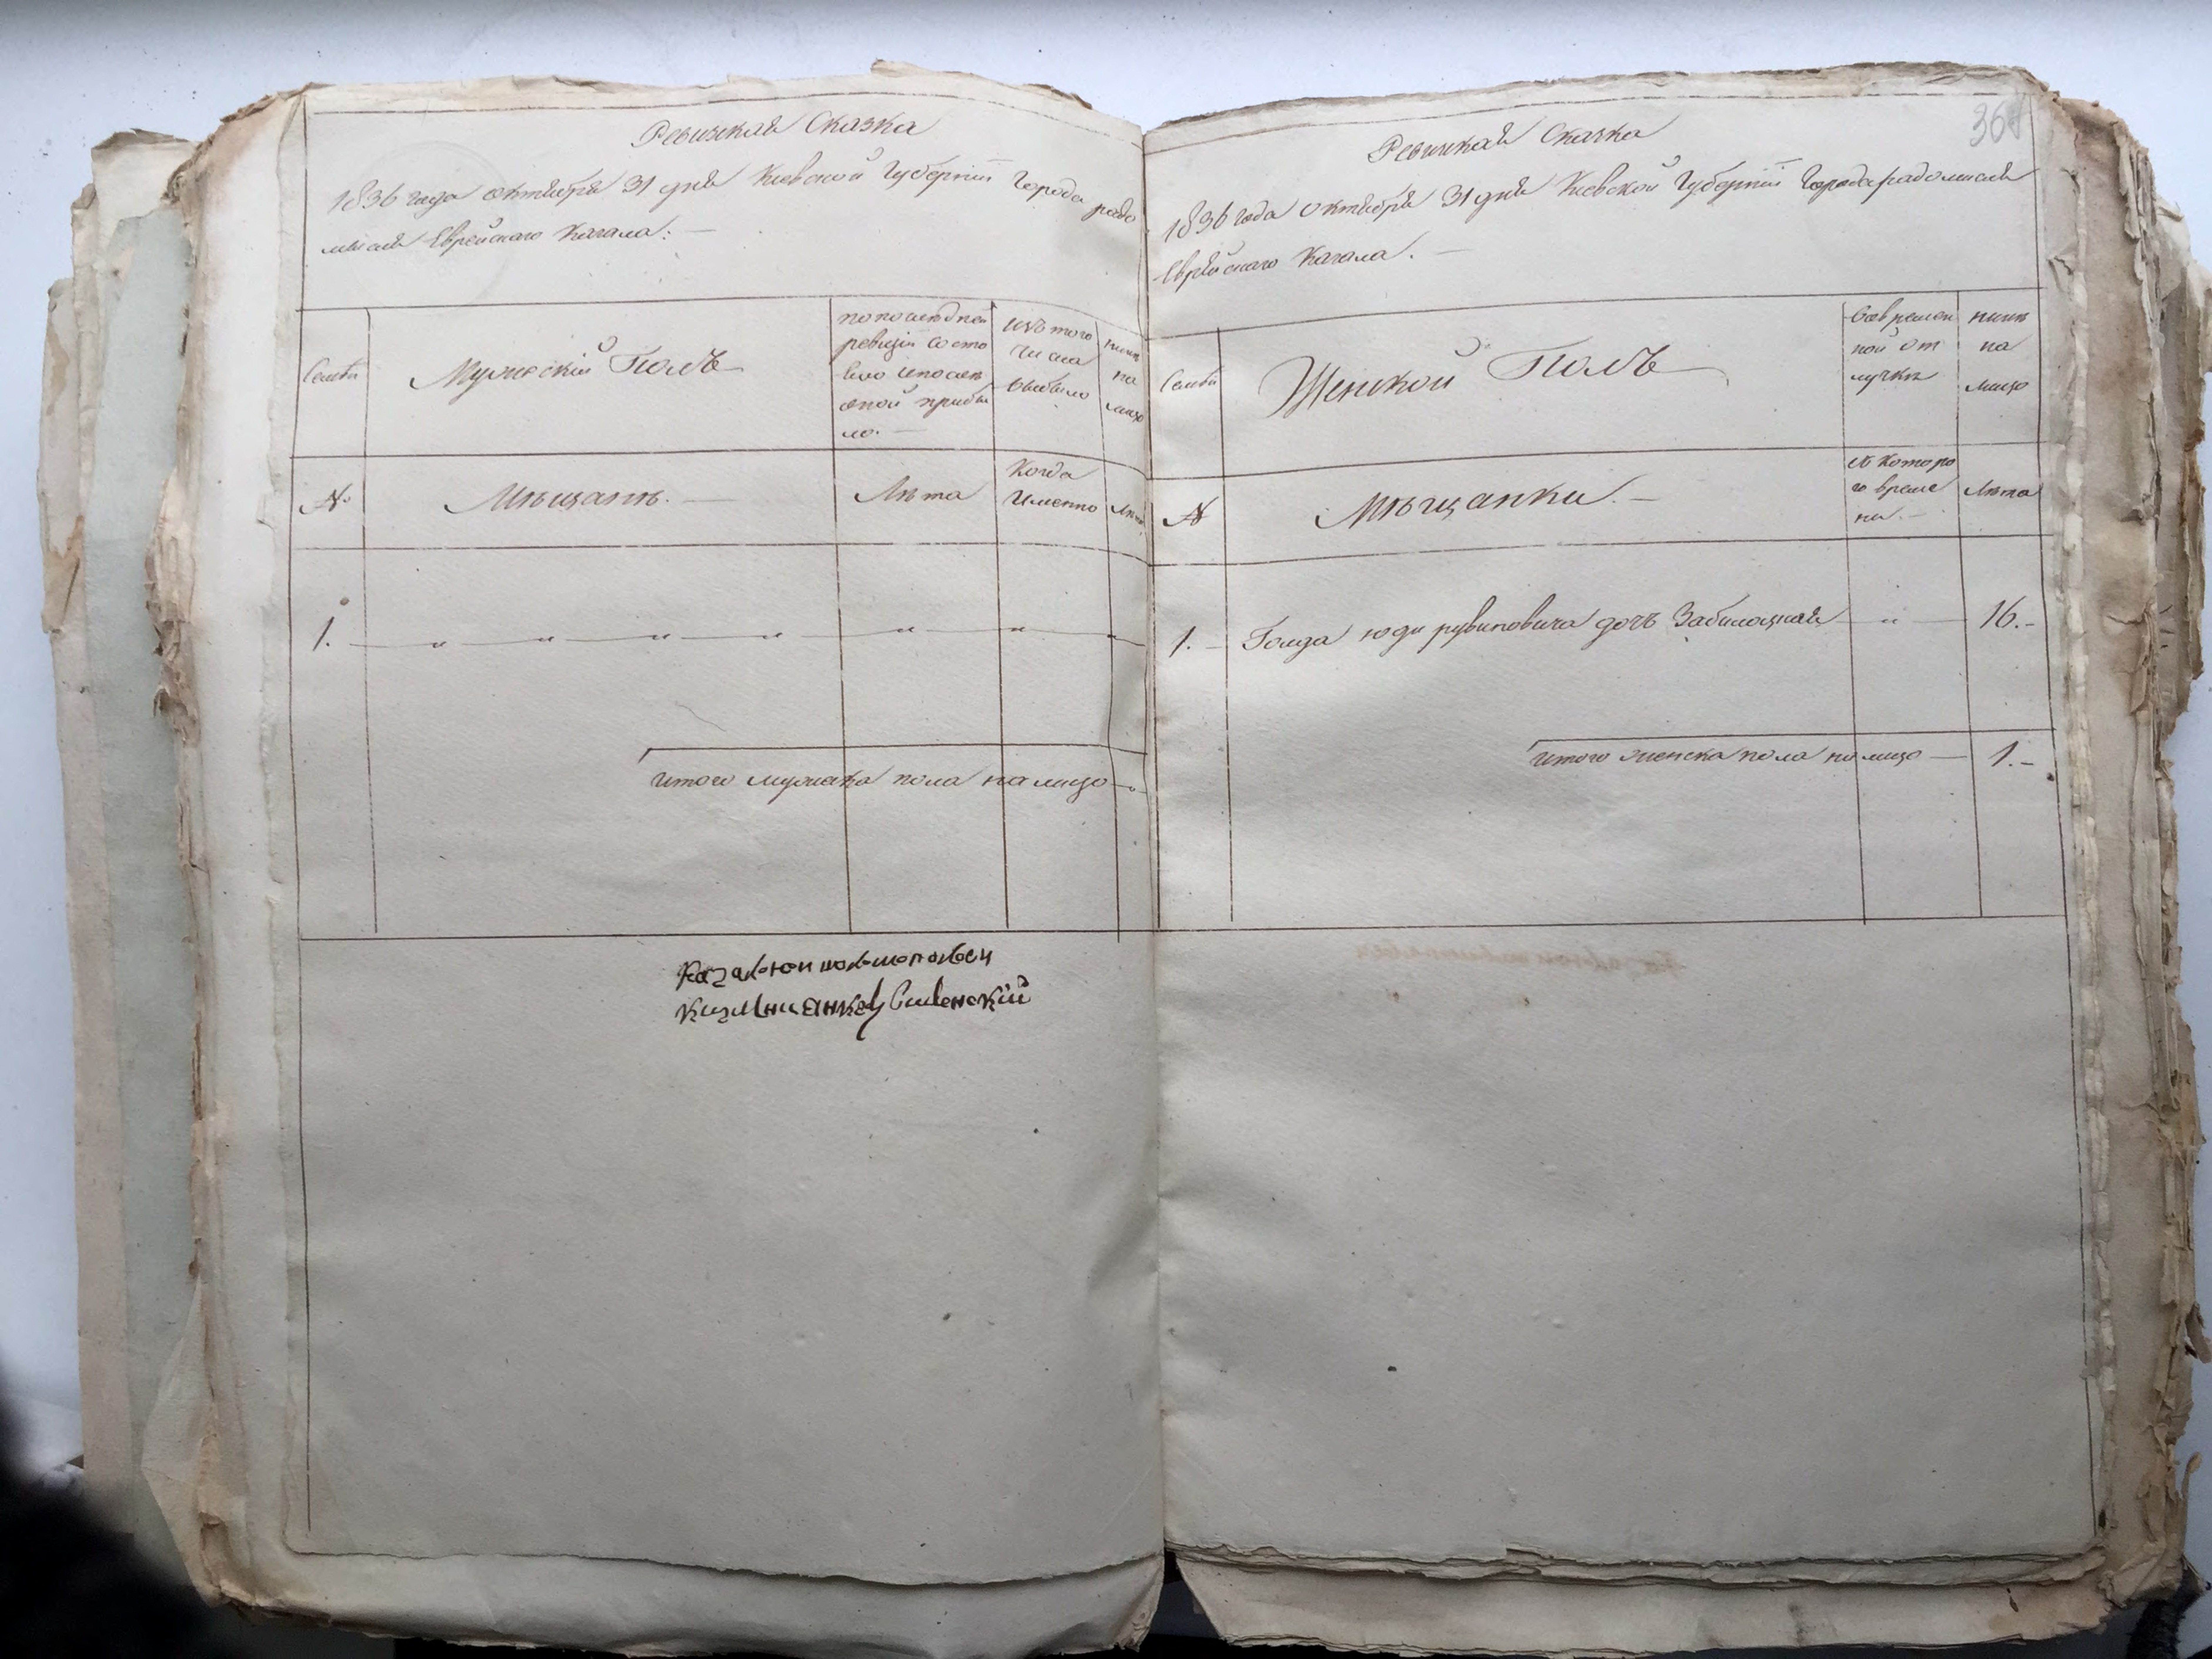 Ревизская Сказка
1836 года октября 31 дня Киевской Губернiи Города радо
мысля Еврейскаго Кагала: —
Семьи
Мужескiй Полъ
по последней
ревизiи состо
яло и после
оной прибы
ло. —
изъ того
числа
выбыло
ныне
на
лицо
№
Мѣщане. —
Лѣта
Когда
Именно
Лѣта
1. — „ — „ — „ — „ — „ — „ — „ —
итого мужеска пола на лицо — „
368
Ревизская Сказка
1836 года октября 31 дня Киевской Губернiи Города радомысля
Еврейскаго Кагала. —
Семьи
Женской Полъ
Во времен
ной от
лучке
ныне
на
лицо
№
Мѣщанки. —
съ которо
го време
ни. —
Лѣта
1. — Голда юди рувиновича дочь Забилоцкая — „ — 16. –
итого женска пола на лицо — 1. –